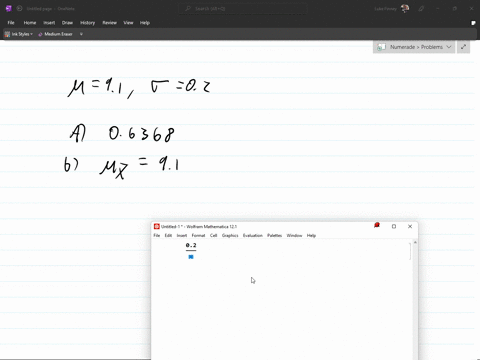 Untitled page - OneNote
Search
File Home Insert Draw History Review View Help
Share
Ink Styles Medium Eraser
Numerade > Problems
μ = 9.1, σ = 0.2
A) 0.6368
b) μx̄ = 9.1
Untitled-1 * - Wolfram Mathematica 12.1
File Edit Insert Format Cell Graphics Evaluation Palettes Window Help
0.2